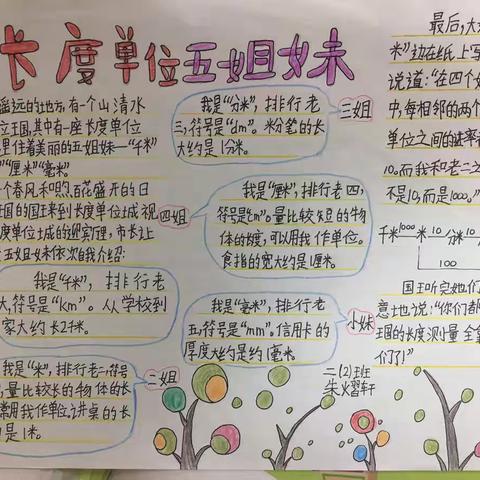 长度单位五姐妹
遥远的地方,有一个山清水
位王国,其中有一座长度单位
里住着美丽的五姐妹—“千米”
”“厘米”“毫米”
个春风和煦,百花盛开的日
王国的国王来到长度单位城视
度单位城的迎宾理,市长让
五姐妹依次自我介绍:
我是“千米”,排行老
大,符号是“km”。从学校到
家大约长2千米。
我是“米”,排行老二,符号
,量比较长的物体的长
常用我作单位,讲桌的长
是1米。
二姐
我是“分米”,排行老
三,符号是“dm”。粉笔的长
大约是1分米。
三姐
我是“厘米”,排行老四,
符号是“cm”。量比较短的物
体的长度,可以用我作单位。
食指的宽大约是1厘米。
四姐
我是“毫米”,排行老
五,符号是“mm”。信用卡的
厚度大约是约1毫米
小妹
最后,大
米”边在纸上写
说道:“在四个
中,每相邻的两个
单位之间的进率都
10。而我和老二之
不是10,而是1000。”
千米1000米10分米10
100
国王听完她们
意地说:“你们都
王国的长度测量全靠
们了!”
二(2)班
朱熠轩